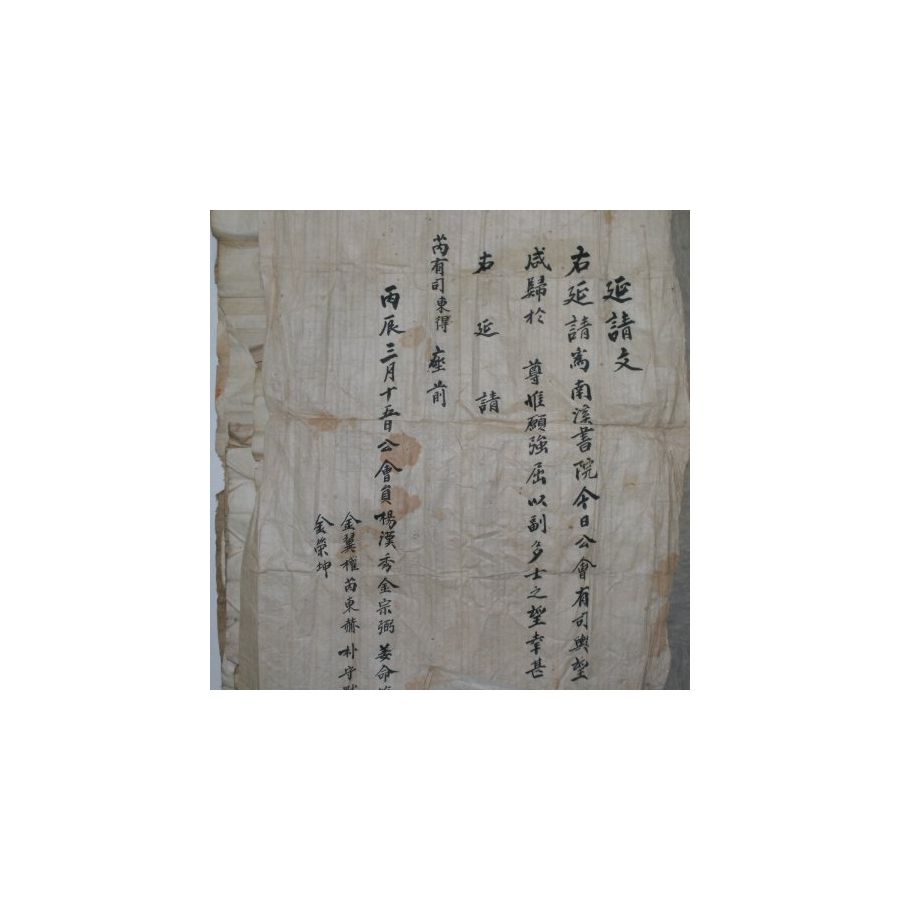 延請文
右延請為南溪書院今日公會有司輿望
咸歸於 尊惟願強屈以副多士之望幸甚
右延請
芮有司東得 座前
丙辰三月十五日公會員楊漢秀金宗弼姜命
金翼權芮東赫朴守
金榮坤